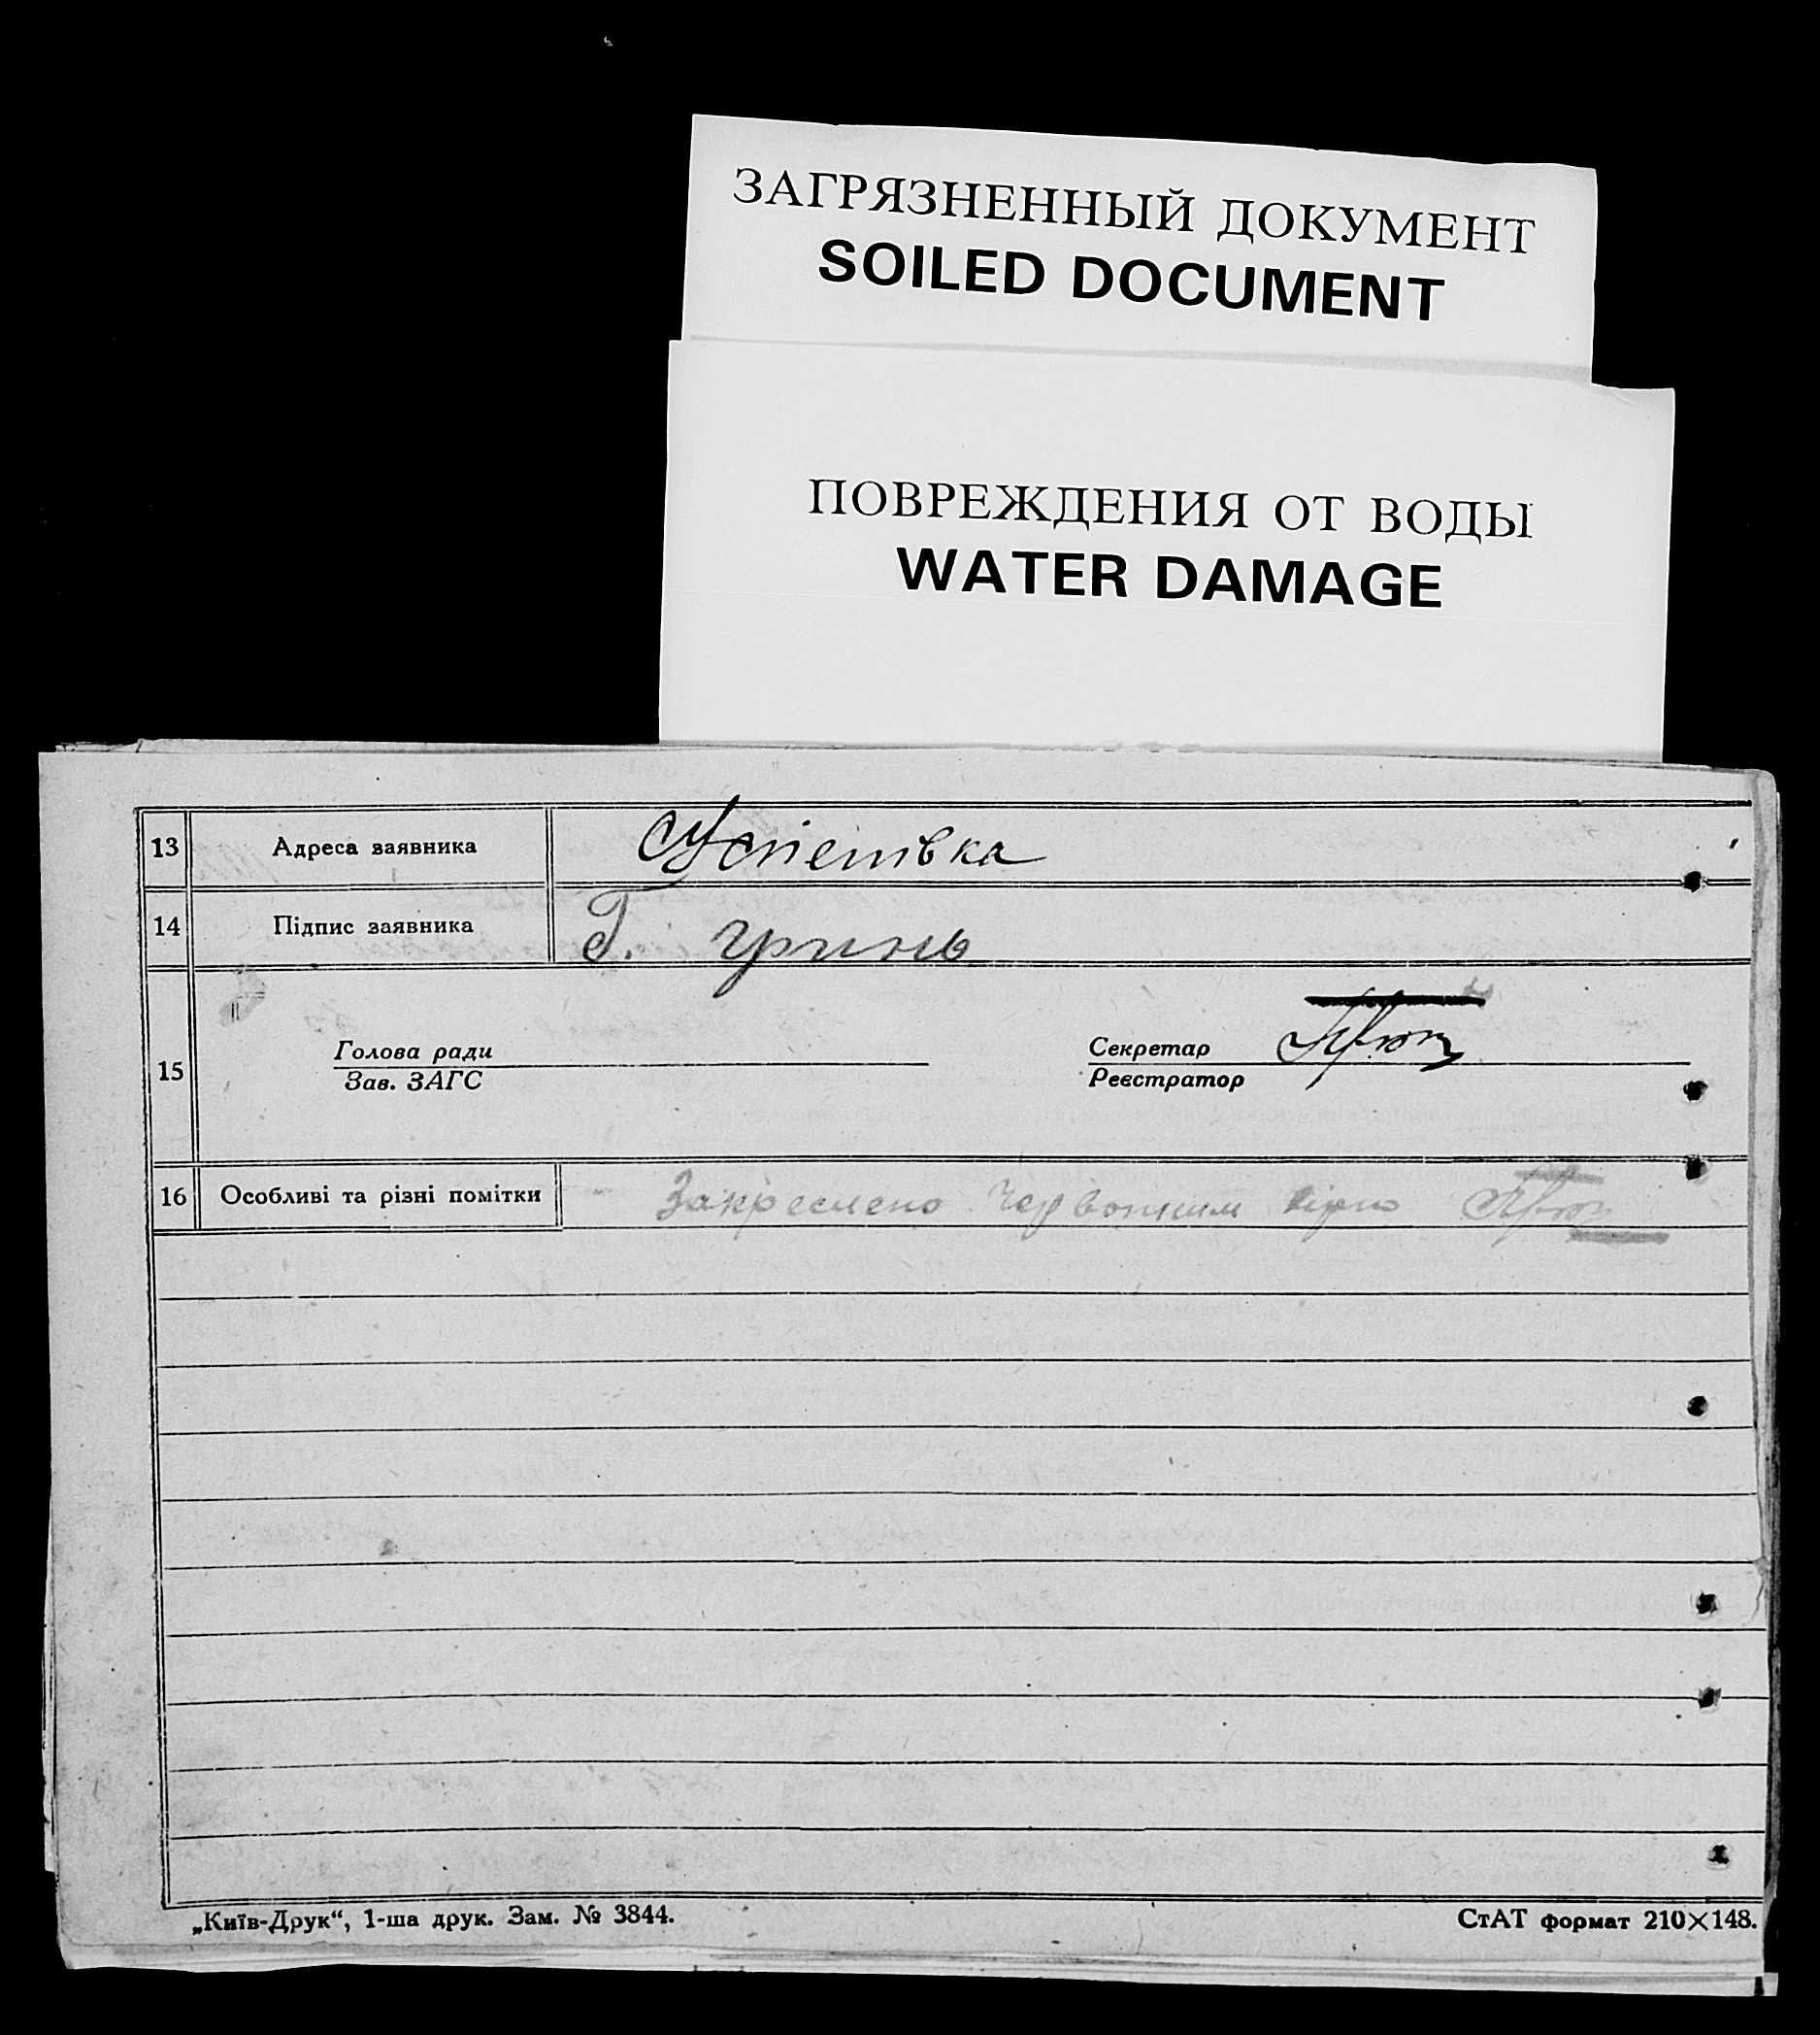 ЗАГРЯЗНЕННЫЙ ДОКУМЕНТ
SOILED DOCUMENT
ПОВРЕЖДЕНИЯ ОТ ВОДЫ
WATER DAMAGE
13 Адреса заявника
14 Підпис заявника Г. Гринь
15
Голова ради
Зав. ЗАГС
Секретар
Реєстратор
16 Особливі та різні помітки Закреслено червоним вірно
„Київ-Друк“, 1-ша друк. Зам. № 3844.
СтАТ формат 210×148.